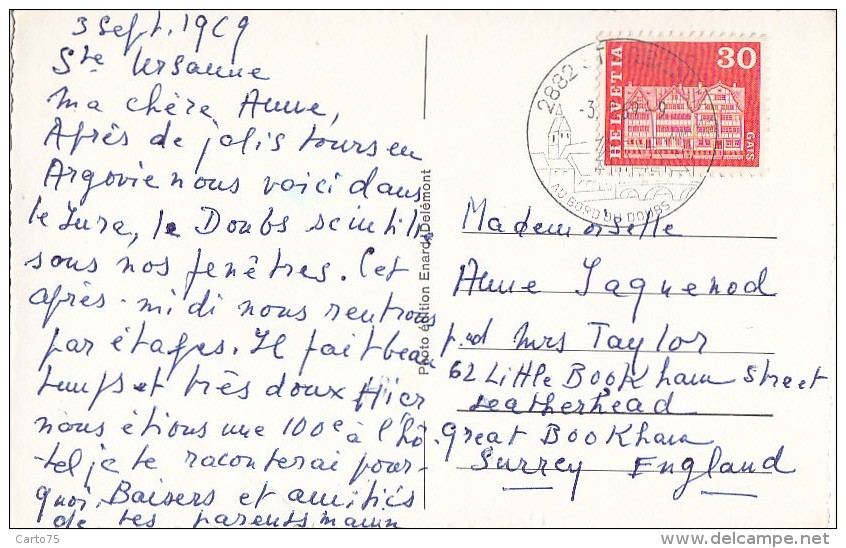 3 Sept. 1969
Ste Ursanne
Ma chère Anne,
Après de jolis tours en
Argovie nous voici dans
le Jura, le Doubs scintille
sous nos fenêtres. Cet
après-midi nous rentrons
par étapes. Il fait beau
temps et très doux Hier
nous étions une 100e à l'hô-
-tel je te raconterai pour-
quoi. Baisers et amitiés
de tes parents
Photo édition Enard, Delémont
2882
-3. 69 -9
AU BORD DU DOUBS
HELVETIA
30
GAIS
Mademoiselle
Anne Jaquenod
p.ad Mrs Taylor
62 Little Bookham Street
Leatherhead
Great Bookham
Surrey England
Carto75
www.delcampe.net